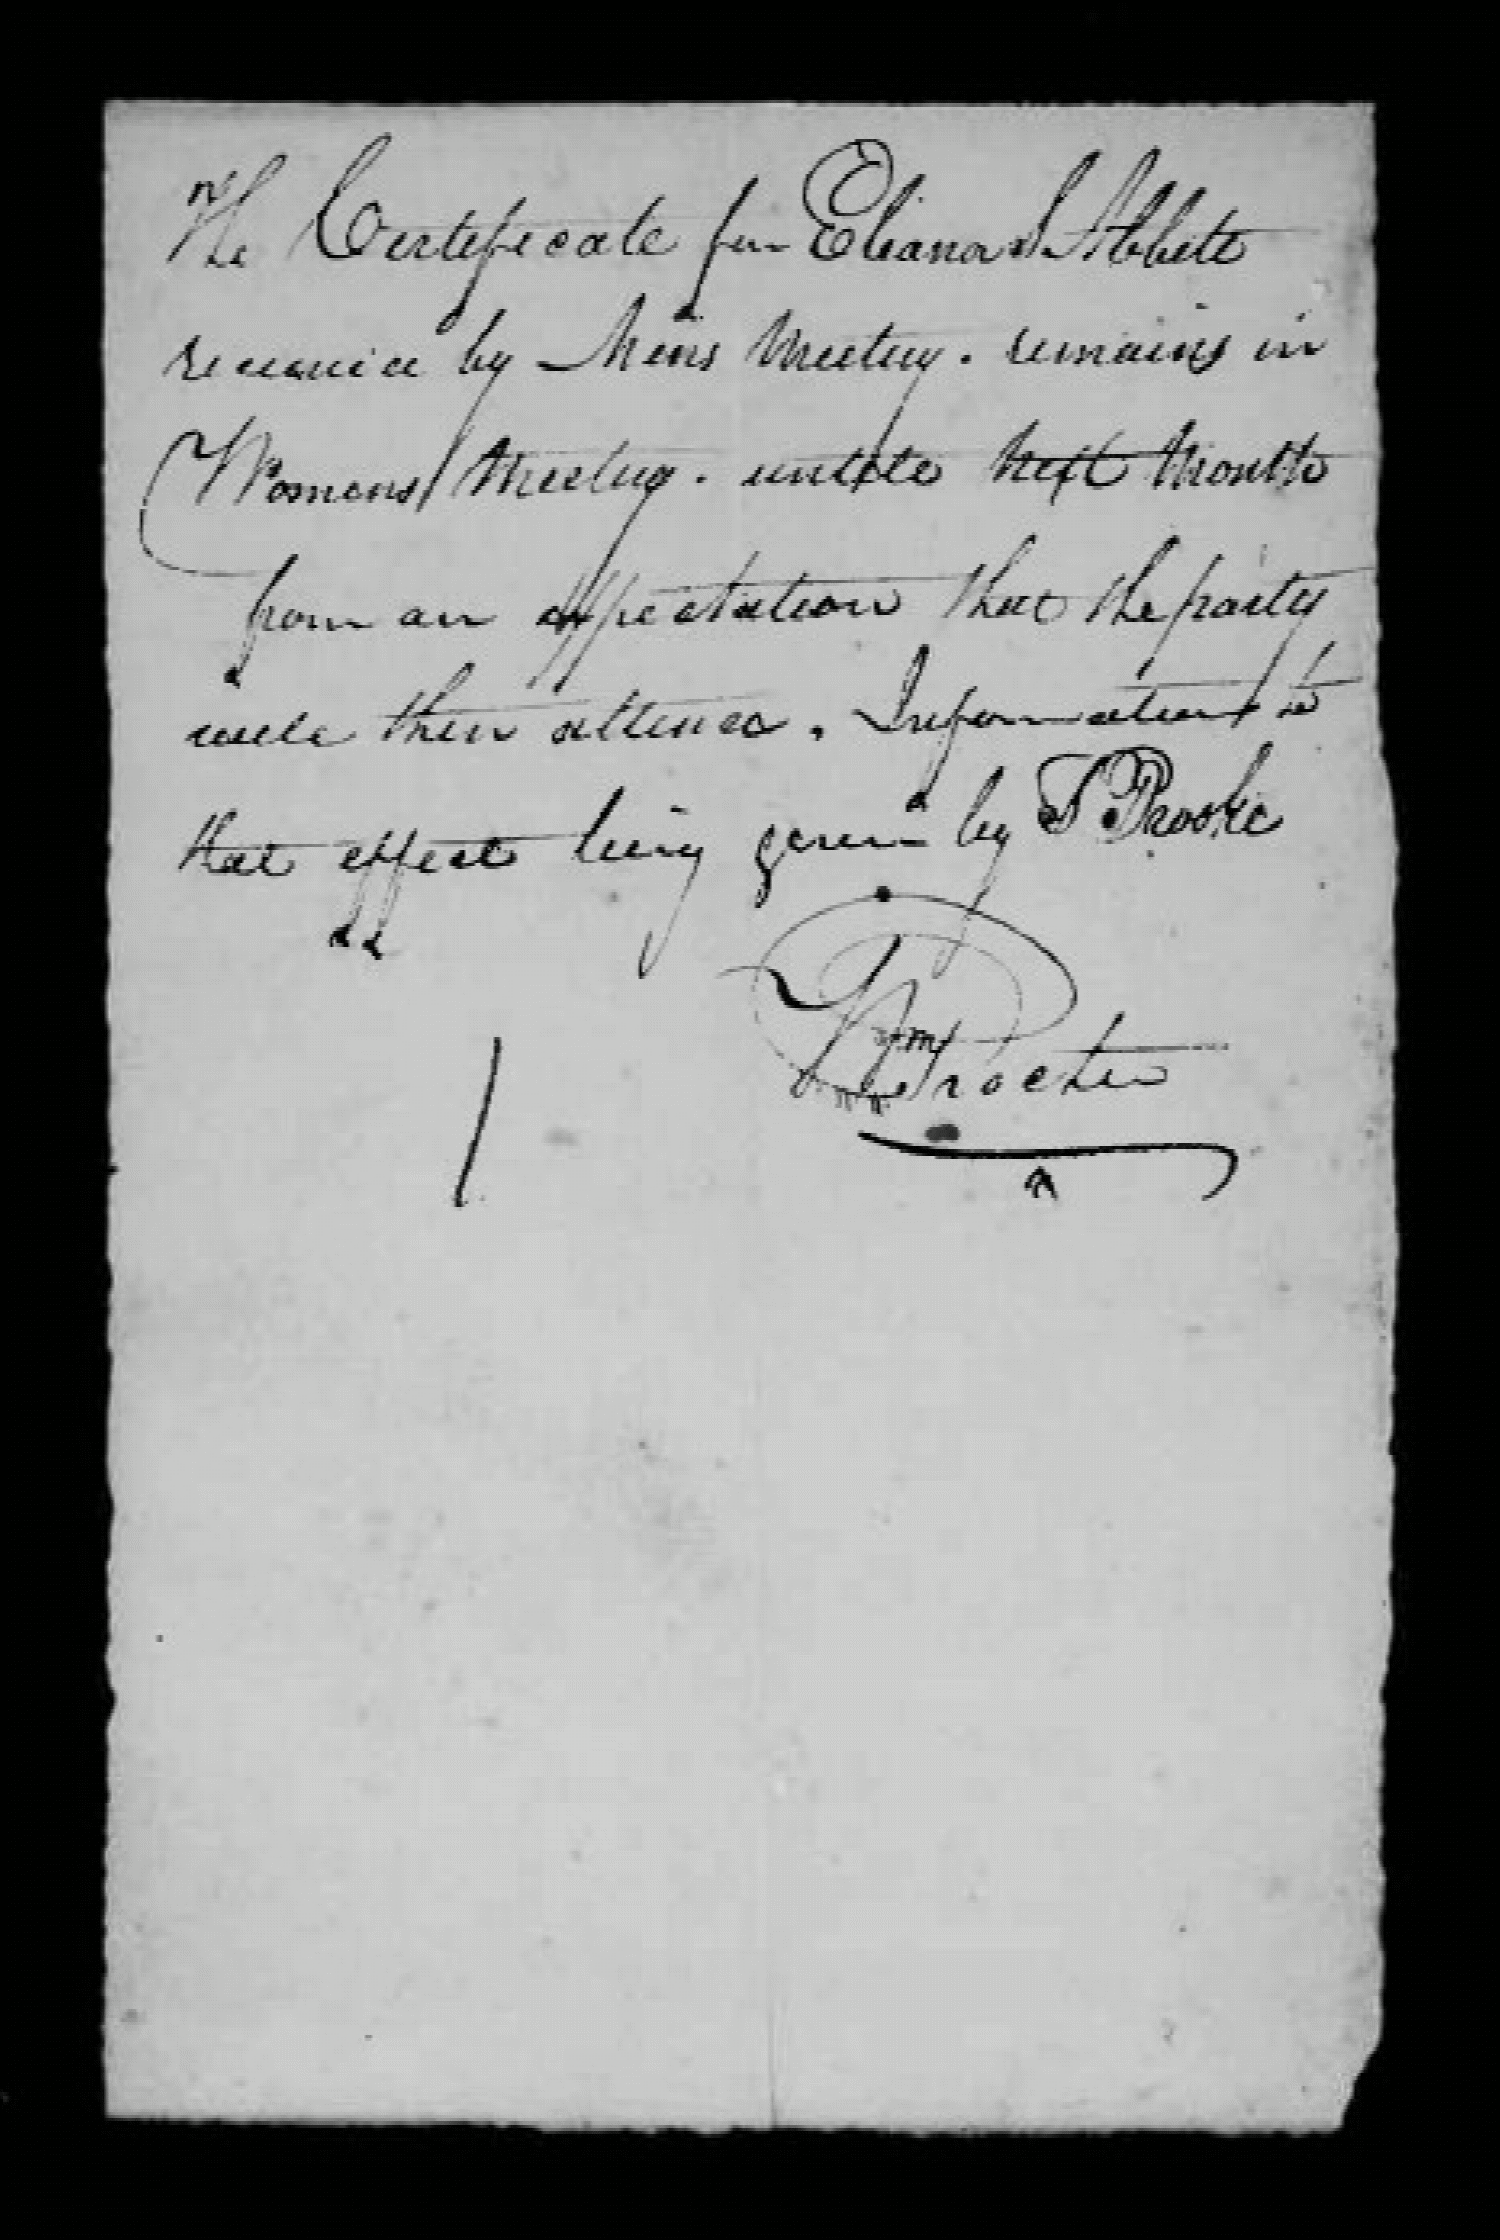 The Certificate for Elianor S Abbett
received by Mens Meeting. remains in
Womens Meeting. untill next Month
from an expectation that the party
will then attend. Information to
that effect being given by S Brooke
Wm Procter